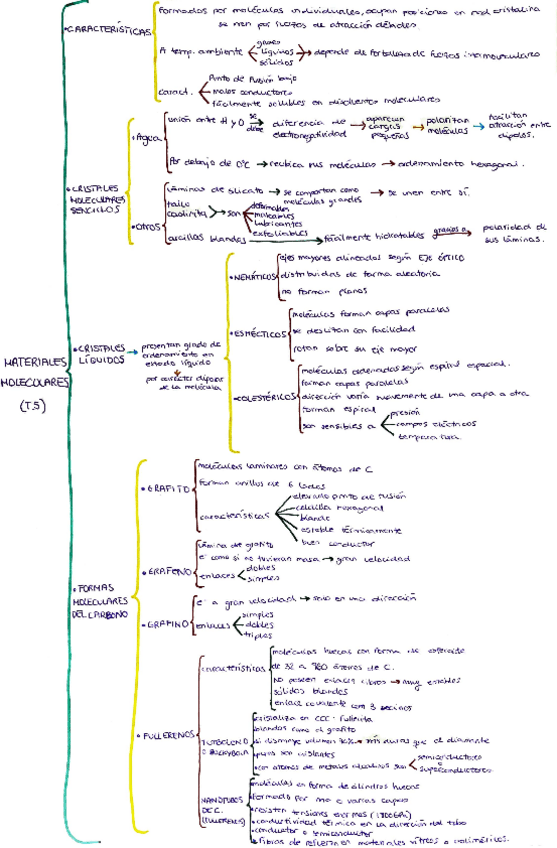 • CARACTERÍSTICAS
Formados por moléculas individuales, ocupan posiciones en red cristalina
se unen por fuerzas de atracción débiles
A temp. ambiente
gases
líquidos
sólidos
depende de fortaleza de fuerzas intermoleculares
caract.
Punto de fusión bajo
malos conductores
fácilmente solubles en disolventes moleculares
• CRISTALES
MOLECULARES
SENCILLOS
• Agua
unión entre H y O se debe diferencia de electronegatividad
aparecen cargas pequeñas
polarizan moléculas
facilitan atracción entre dipolos.
Por debajo de 0ºC → reubica sus moléculas → ordenamiento hexagonal.
• OTROS
láminas de silicato → se comportan como moléculas grandes → se unen entre sí.
talco
caolinita
son
deformables
lubricantes
exfoliables
arcillas blandas → fácilmente hidratables gracias a polaridad de sus láminas.
MATERIALES
MOLECULARES
(T.5)
• CRISTALES
LÍQUIDOS
presentan grado de
ordenamiento en
estado líquido
por carácter dipolar
de la molécula
• NEMÁTICOS
ejes mayores alineados según EJE ÓPTICO
distribuidas de forma aleatoria
no forman planos
• ESMÉCTICOS
moléculas forman capas paralelas
se deslizan con facilidad
rotan sobre su eje mayor
• COLESTÉRICOS
moléculas ordenadas según espiral espacial.
forman capas paralelas
dirección varía suavemente de una capa a otra
forman espiral
son sensibles a
presión
campos eléctricos
temperatura.
• FORMAS
MOLECULARES
DEL CARBONO
• GRAFITO
moléculas laminares con átomos de C
forman anillos de 6 lados
características
elevado punto de fusión
celdilla hexagonal
blando
estable térmicamente
buen conductor
• GRAFENO
lámina de grafito
e⁻ como si no tuvieran masa → gran velocidad
enlaces
dobles
simples
• GRAFINO
e⁻ a gran velocidad → solo en una dirección
enlaces
simples
dobles
triples
• FULLERENOS
características
moléculas huecas con forma de esferoide
de 32 a 960 átomos de C.
no poseen enlaces libros → muy estables
sólidos blandos
enlace covalente con 3 vecinos
FUTBOLENO
O BUCKYBOLA
cristaliza en CCC - fullerita
blandos como el grafito
si disminuye volumen 30% → más duras que el diamante
puros son aislantes
con átomos de metales alcalinos son
semiconductores
superconductores.
NANOTUBOS
DE C.
(FULLERENOS)
moléculas en forma de cilindros huecos
formado por una o varias capas
resisten tensiones enormes
conductividad térmica en la dirección del tubo
conductor o semiconductor
fibras de refuerzo en materiales vítreos o poliméricos.